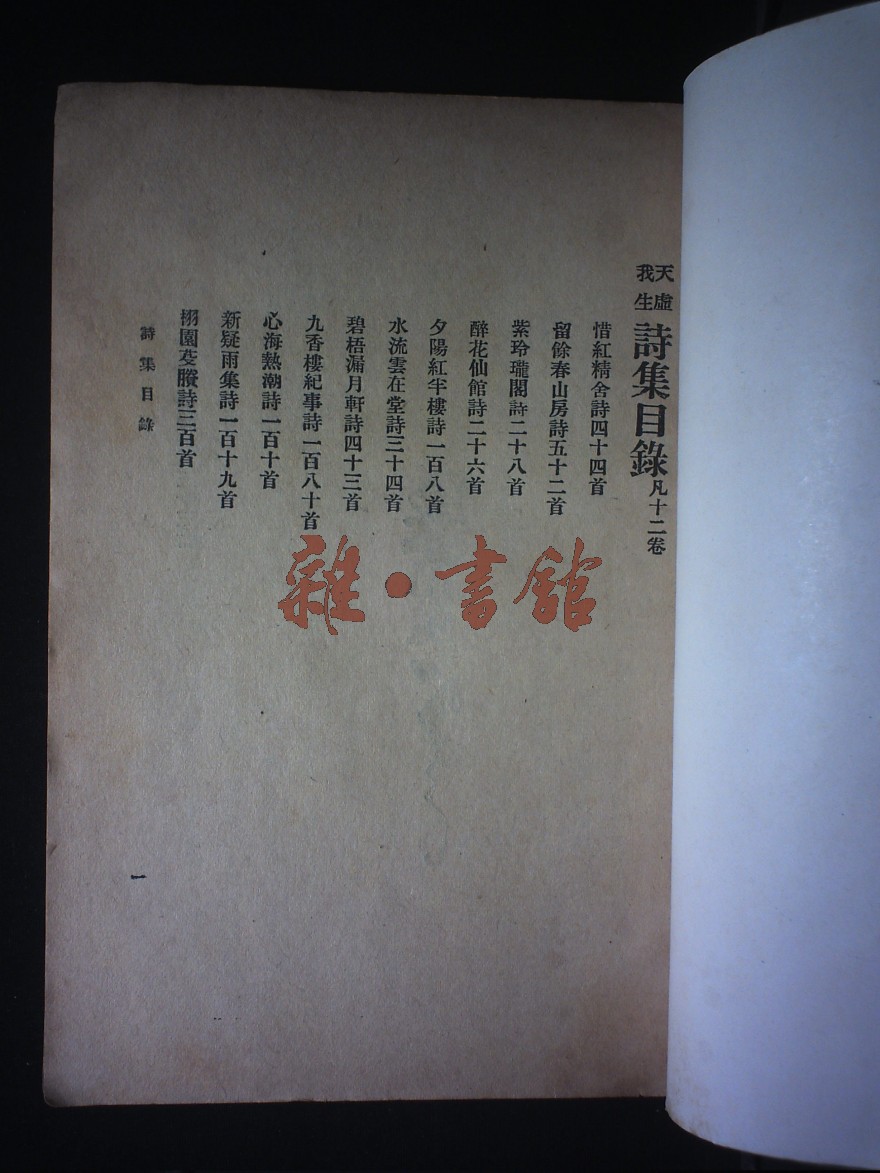 天虛我生詩集目錄凡十二卷
惜紅精舍詩四十四首
留餘春山房詩五十二首
紫玲瓏閣詩二十八首
醉花仙館詩二十六首
夕陽紅半樓詩一百八首
水流雲在堂詩三十四首
碧梧漏月軒詩四十三首
九香樓紀事詩一百八十首
心海熱潮詩一百十首
新疑雨集詩一百十九首
栩園芟賸詩三百首
詩集目錄
一
雜·書館